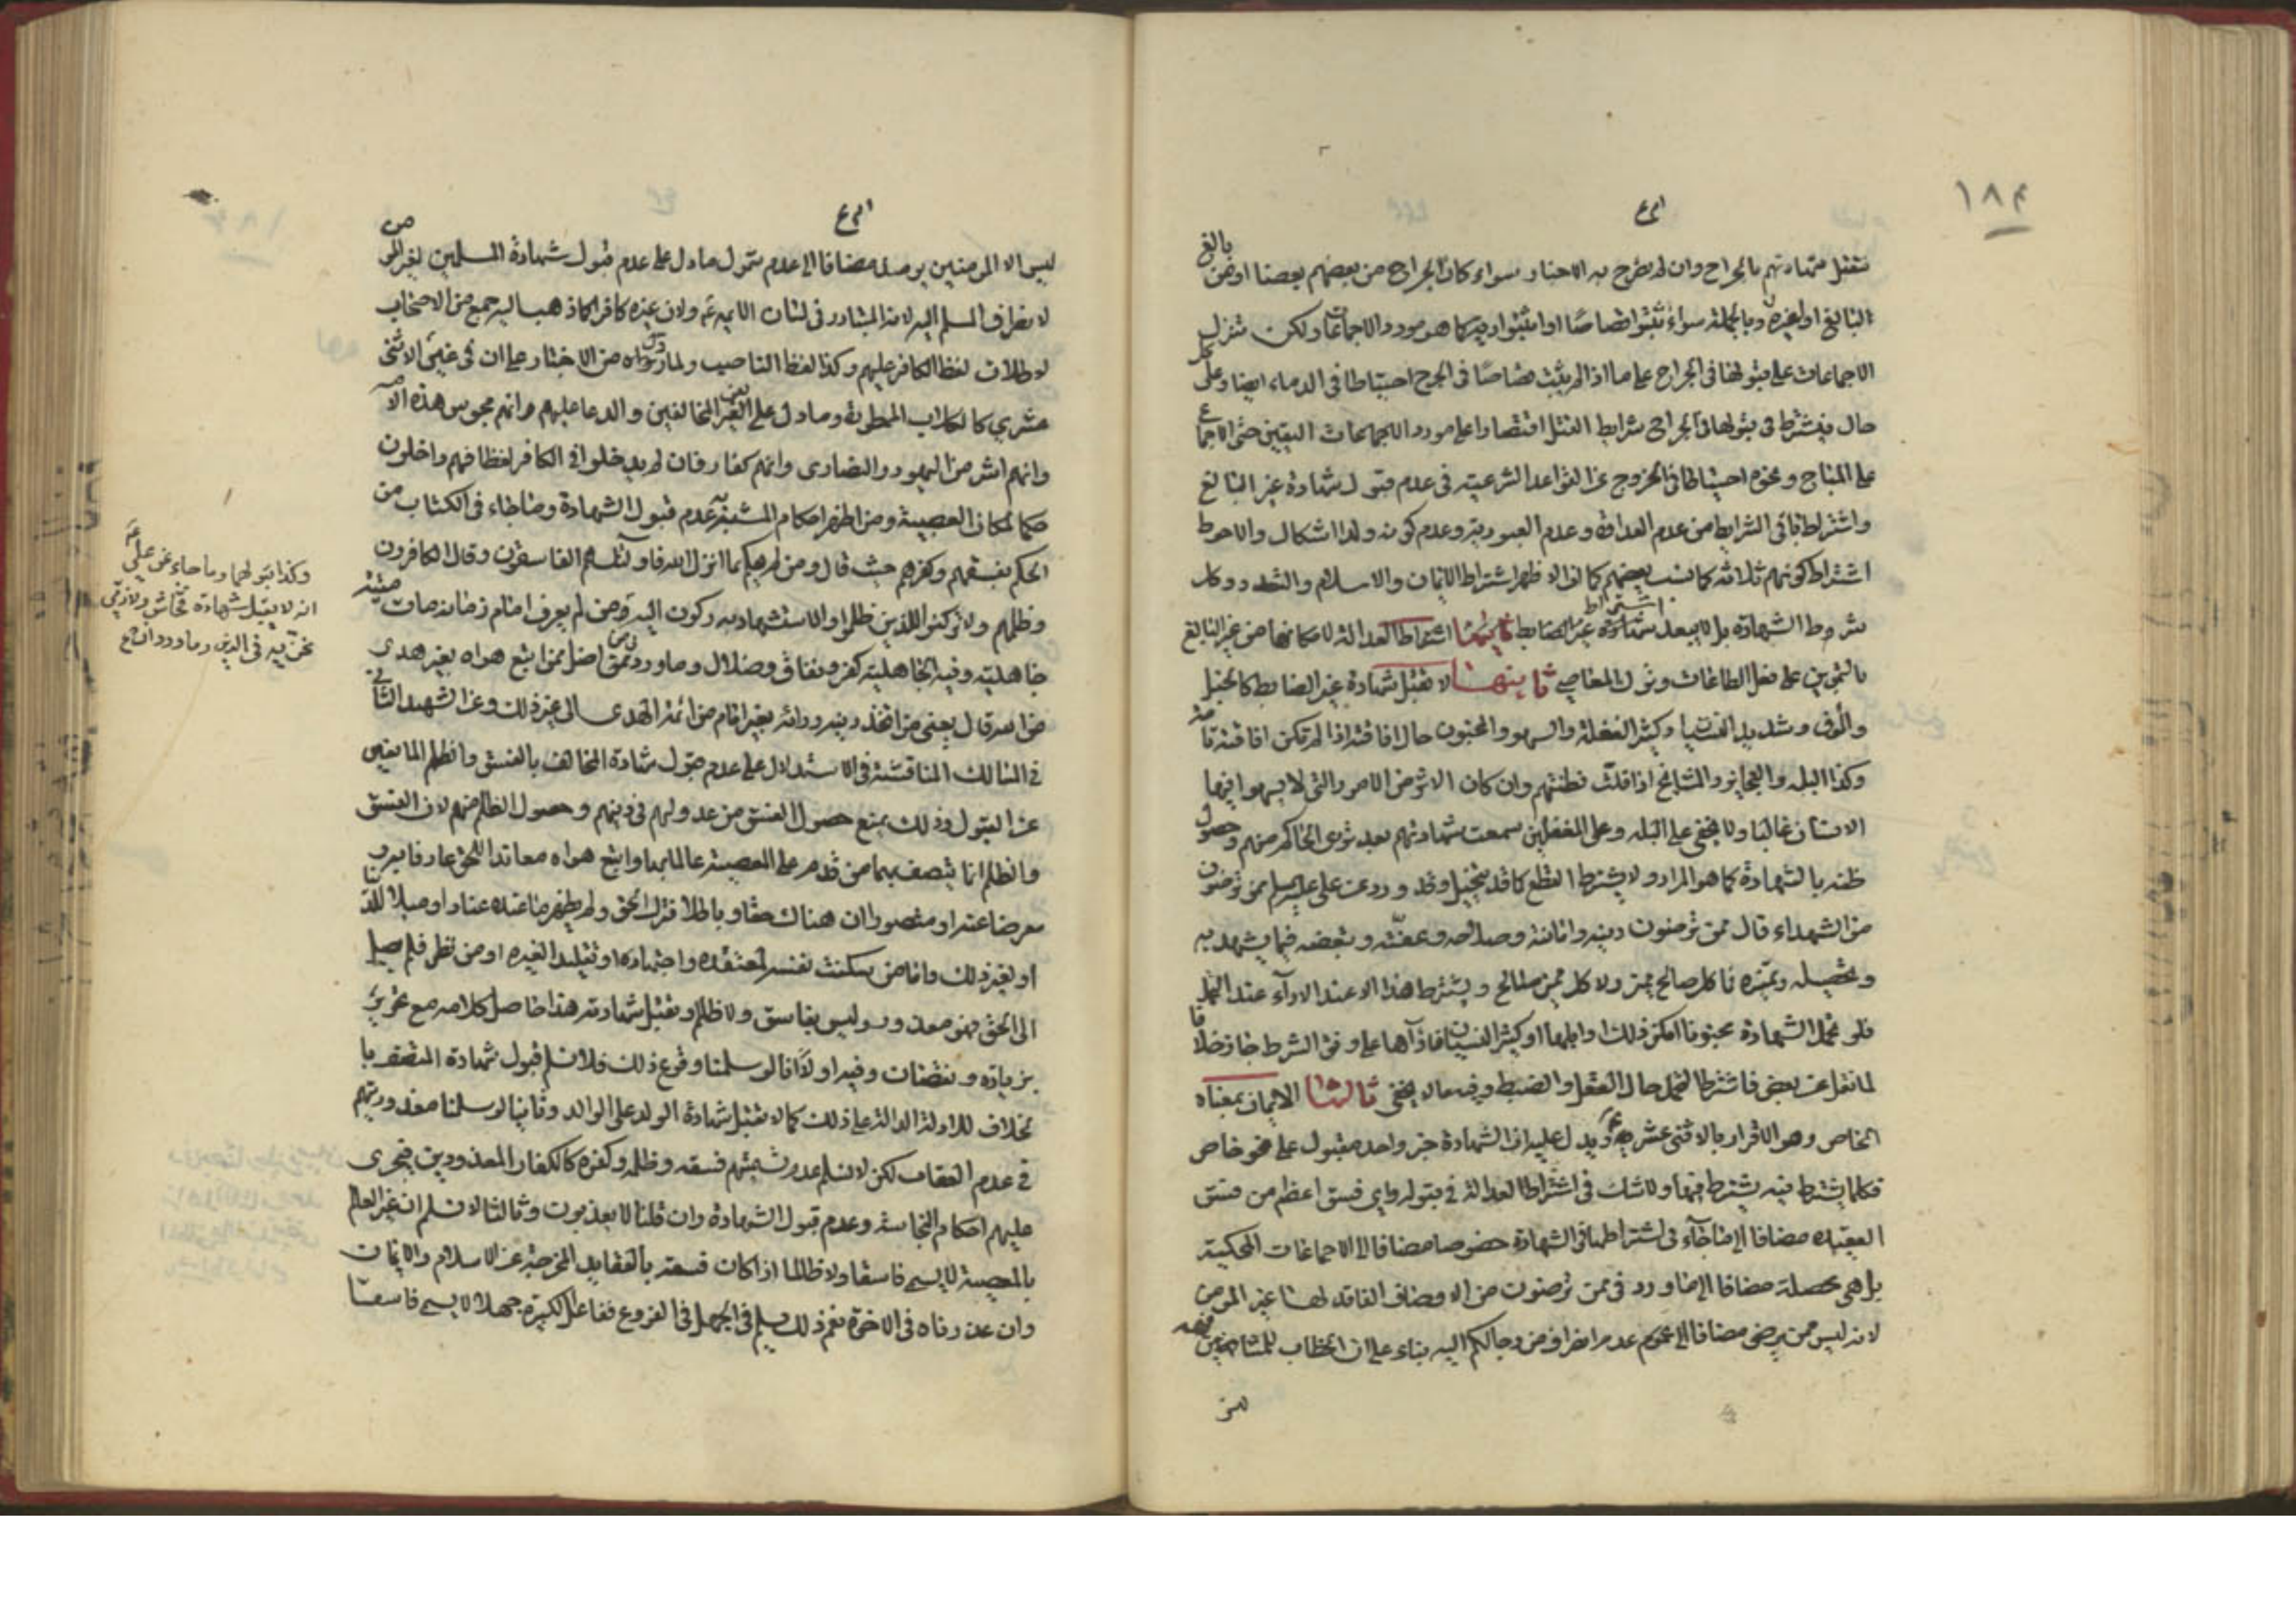 ١٨٤
تقبل شهادتهم بالجراح وان لم يصرح به الاخبار سواء كان الجراح من بعضهم بعضا او من بالغ
البالغ او لغيره وبالجملة سواء ثبتوا قصاصا او اثبتوا دية كما هو مورد الاجماعات ولكن تنزل
الاجماعات على قبولها في الجراح على ما اذا لم يثبت قصاصا في الجرح احتياطا في الدماء ايضا وعلى كل
حال فيشترط في قبولها في الجراح شرايط القتل اقتصارا على مورد الاجماعات اليقين حتى الاجماع
على المباح ونحوه احتياطا في الخروج عن القواعد الشرعية في عدم قبول شهادة غير البالغ
واشتراط باقي الشرايط من عدم العداوة وعدم العبودية وعدم كونه ولدا اشكال والاحوط
اشتراط كونهم ثلاثة كما نسب بعضهم كما ان الاظهر اشتراط الايمان والاسلام والتعدد وكل
شروط الشهادة بل لا يبعد اشتراط العدالة لامكانها من غير البالغ
بالتمرين على فعل الطاعات وترك المعاصي ثانيها لا تقبل شهادة غير الضابط كالخبل
والموق وشديد النسيان وكثير الغفلة والسهو والمجنون حال افاقته اذا لم تكن افاقته تامة
وكذا البله والعجايز والمشايخ اذا قلت فطنتهم وان كان الاثر من الامور والتي لا يسهوا فيها
الانسان غالبا ولا يخفى على البله وعلى المغفلين سمعت شهادتهم بعد تروي الحاكم منهم وحصول
ظنه بالشهادة كما هو المراد ولا يشترط القطع كما قد يتخيل وقد ورد عن علي عليه السلم ممن ترضون
من الشهداء قال ممن ترضون دينه وامانته وصلاحه وعفته وتيقضه فيما يشهد به
وتحصيله وتميزه فما كل صالح مميز ولا كل مميز صالح ويشترط هذا الا عند الاداء عند التحمل
فلو تحمل الشهادة مجنونا امكن ذلك وابلها او كثير النسيان فاذا اداها على وفق الشرط جاز خلافا
لما نقل عن بعض فاشترط لتحمل حال العقل والضبط وفيه ما لا يخفى ثالثها الايمان بمعناه
الخاص وهو الاقرار بالاثنى عشرية ويدل عليه ان الشهادة خبر واحد مقبول على نحو خاص
فكلما يشترط فيه يشترط فيها ولا شك في اشتراط العدالة في قبوله واي فسق اعظم من فسق
العقيدة مضافا الى ما جاء في اشتراطها في الشهادة خصوصا مضافا الى الاجماعات المحكية
بل هي محصلة مضافا الى ما ورد في ممن ترضون من الاوصاف الفاقد لها غير المؤمن
لانه ليس ممن يرضى مضافا الى عموم عدم انصراف من رجالكم اليه بناء على ان الخطاب للمشافهين
ليس
ليس الا المؤمنين يومئذ مضافا الى عدم شمول ما دل على عدم قبول شهادة المسلمين لغير المؤمن
لانصراف المسلم اليه لانه المتبادر في لسان الائمة ع ولان غيره كافر كما ذهب اليه جمع من الاصحاب
لاطلاق لفظ الكافر عليهم وكذا لفظ الناصب ولما رواه من الاخبار على ان في غير الاثنى
عشري كالكلاب الممطورة وما دل على لعن المخالفين والدعا عليهم وانهم مجوس هذه الامة
وانهم اشر من اليهود والنصارى وانهم كفار فان لم يدخلوا في الكافر لفظا فهم داخلون
حكما لمكان العصبية ومن اظهر احكام المشبه به عدم قبول الشهادة وما جاء في الكتاب من
الحكم بفسقهم وكفرهم حيث قال ومن لم يحكم بما انزل الله فاولئك هم الفاسقون وقال الكافرون
وظلمهم ولا تركنوا الى الذين ظلموا والاستشهاد به ركون اليه ومن لم يعرف امام زمانه مات ميتة
جاهلية وفيه الجاهلية كفر ونفاق وضلال وما ورد ومن اضل ممن اتبع هواه بغير هدى
من الله قال يعني من اتخذ دينه ورائه بغير امام من ائمة الهدى الى غير ذلك وعن الشهيد الثاني
في المسالك المناقشة في الاستدلال على عدم قبول شهادة المخالف بالفسق والظلم المانعين
عن القبول وذلك بمنع حصول الفسق من عدولهم في دينهم وحصول الظلم منهم لان الفسق
والظلم انما يتصف بهما من قدم على المعصية عالما بها واتبع هواه معاندا للحق عارفا به
معرضا عنه او متصورا ان هناك حقا وباطلا فترك الحق ولم يظهر ما عنده عنادا او ميلا للدنيا
او لغير ذلك واما من سكنت نفسه لمعتقده واجتهاده او تقليد الغيره او من نظر فلم يصل
الى الحق فهو معذور وليس بفاسق ولا ظالم وتقبل شهادته هذا حاصل كلامه مع تحرير
بزيادة ونقصان وفيه اولا انا لو سلمنا وقوع ذلك فلا نسلم قبول شهادة المتصف بالخلاف
للادلة الدالة على ذلك كما لا تقبل شهادة الولد على الوالد وثانيا لو سلمنا معذوريتهم
في عدم العقاب لكن لا نسلم عدم تسميتهم فسقه وظلمه وكفره كالكفار المعذودين فيجرى
عليهم احكام النجاسة وعدم قبول الشهادة وان قلنا لا يعذبون وثالثا لا نسلم ان غير العالم
بالمعصية لا يسمى فاسقا ولا ظالما اذا كان فسقه بالعقايد المخرجة عن الاسلام والايمان
وان عذرناه في الاخرة نعم ذلك مسلم في الجهل في الفروع ففاعل الكبيرة جهلا لا يسمى فاسقا
وكذا قبولها وما جاء عن علي ع
انه لا يقبل شهادة فحاش ولا ذي
مخزية في الدين وما ورد ان